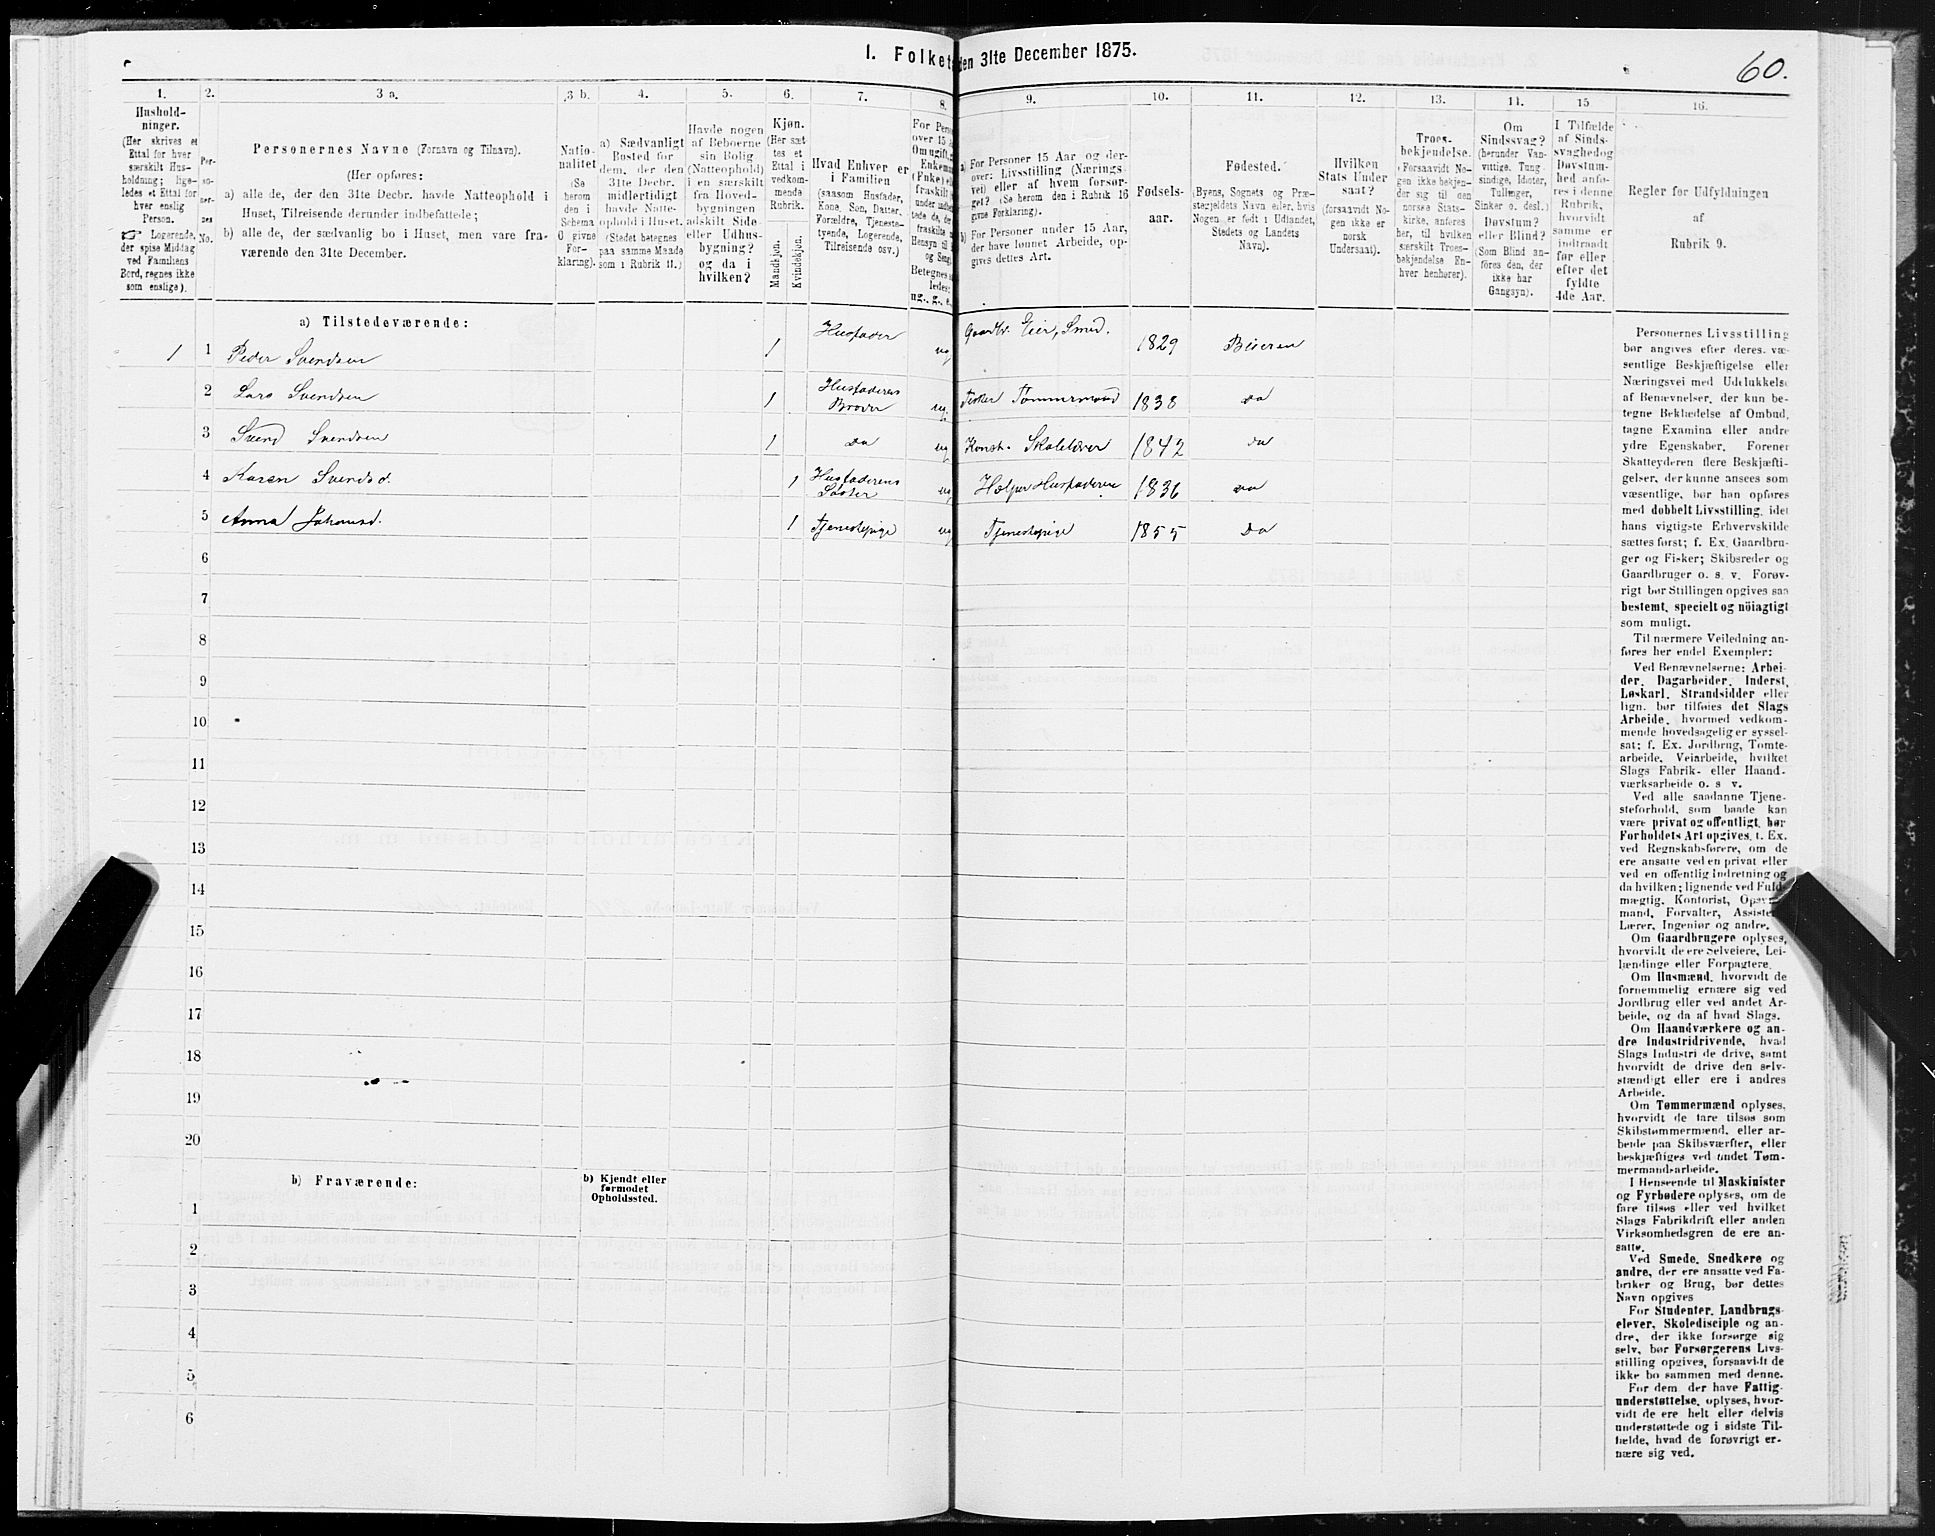 I. Folket den 31te December 1875.
60.
1.
2.
3 a.
3 b.
4.
5.
6.
7.
8.
9.
10.
11.
12.
13.
14.
15
16.
Hushold-
ninger.
(Her skrives et
Ettal for hver
særskilt Hus-
holdning; lige-
ledes et Ettal for
hver enslig
Person.
☞ Logerende,
der spise Middag
ved Familiens
Bord, regnes ikke
som enslige).
Per-
so-
ner-
nes
No.
Personernes Navne (Fornavn og Tilnavn).
(Her opføres:
a) alle de, der den 31te Decbr. havde Natteophold i
Huset, Tilreisende derunder indbefattede;
b) alle de, der sædvanlig bo i Huset, men vare fra-
værende den 31te December.
Natio-
nalitet
(Se
herom
den i
Schema
O givne
For-
klaring).
a) Sædvanligt
Bosted for
dem, der den
31te Decbr.
midlertidigt
havde Natte-
ophold i Huset.
(Stedet betegnes
paa samme Maade
som i Rubrik 11.)
Havde nogen
af Beboerne
sin Bolig
(Natteophold)
i en særskilt
fra Hoved-
bygningen
adskilt Side-
eller Udhus-
bygning?
og da i
hvilken?
Kjøn.
(Her sæt
tes et
Ettal i
vedkom-
mende
Rubrik.
Mandkjøn.
Kvindekjøn.
Hvad Enhver er
i Familien
(saasom Husfader,
Kone, Søn, Datter,
Forældre, Tjeneste-
tyende, Logerende,
Tilreisende osv.)
For Pers
over 15 A
Om ugift,
Enkeman
(Enke) e
fraskilt
under indbe
tede de, d
fraskilte
Hensyn til
og Seng
Betegnes
ledes:
ug., g., e.
a) For Personer 15 Aar og der-
over: Livsstilling (Nærings-
vei) eller af hvem forsør-
get? (Se herom den i Rubrik 16
givne Forklaring).
b) For Personer under 15 Aar,
der have lønnet Arbeide, op-
gives dettes Art.
Fødsels-
aar.
Fødested.
(Byens, Sognets og Præ-
stegjeldets Navn eller, hvis
Nogen er født i Udlandet,
Stedets og Landets
Navn).
Hvilken
Stats Under
saat?
(forsaavidt No-
gen ikke er
norsk
Undersaat).
Troes-
bekjendelse.
(Forsaavidt No-
gen ikke bekjen-
der sig til den
norske Stats-
kirke, anføres
her, til hvilken
særskilt Troes-
bekjendelse En-
hver henhører).
Om
Sindssvag?
(herunder Van-
vittige, Tung-
sindige, Idioter,
Tullinger,
Sinker o. desl.)
Døvstum?
eller Blind?
(Som Blind an-
føres den, der
ikke har
Gangsyn).
I Tilfælde
af Sinds-
svaghedog
Døvstum-
hed anfø-
res i denne
Rubrik,
hvorvidt
samme er
indtraadt
før eller
efter det
fyldte
4de Aar.
Regler for Udfyldningen
af
Rubrik 9.
a) Tilstedeværende:
1 1 Peder Svendsen 1 Husfader ug Gaardbr. Eier, Smed. 1829 Beieren
2 Lars Svendsen 1 Husfaderens Broder ug. Fisker Tømmermand 1838 Do
3 Svend Svendsen 1 Do ug Konst. Skolelærer 1842 Do
4 Karen Svendsd. 1 Husfaderens Søster ug Hælper Husfaderen 1836 Do
5 Anna Johansd. 1 Tjenestepige ug Tjenestepige 1855 Do
6
7
8
9
10
11
12
13
14
15
16
17
18
19
20
b) Fraværende:
b) Kjendt eller
formodet
Opholdssted.
1
2
3
4
5
6
Personernes Livsstilling
bør angives efter deres væ-
sentlige Beskjæftigelse eller
Næringsvei med Udelukkelse
af Benævnelser, der kun be-
tegne Beklædelse af Ombud,
tagne Examina eller andre
ydre Egenskaber. Forener
Skatteyderen flere Beskjæfti-
gelser, der kunne ansees som
væsentlige, bør han opføres
med dobbelt Livsstilling, idet
hans vigtigste Erhvervskilde
sættes først; f. Ex. Gaardbru-
ger og Fisker; Skibsreder og
Gaardbruger o. s. v. Forøv-
rigt bør Stillingen opgives saa
bestemt, specielt og nöiagtigt
som muligt.
Til nærmere Veiledning an-
føres her endel Exempler:
Ved Benævnelserne: Arbei-
der, Dagarbeider, Inderst,
Løskarl, Strandsidder eller
lign. bør tilføies det Slags
Arbeide, hvormed vedkom-
mende hovedsagelig er syssel-
sat; f. Ex. Jordbrug, Tomte-
arbeide, Veiarbeide, hvilket
Slags Fabrik- eller Haand-
værksarbeide o. s v.
Ved alle saadanne Tjene-
steforhold, som baade kan
være privat og offentligt, bør
Forholdets Art opgives, t. Ex.
ved Regnskabsførere, om de
ere ansatte ved en privat eller
ved en offentlig Indretning og
da hvilken; lignende ved Fuld-
mægtig, Kontorist, Opsy
mand, Forvalter, Assiste
Lærer, Ingeniør og andre.
Om Gaardbrugere oplyses,
hvorvidt de ere Selveiere, Lei-
lændinge eller Forpagtere.
Om Husmænd, hvorvidt de
fornemmelig ernære sig ved
Jordbrug eller ved andet Ar-
beide, og da af hvad Slags.
Om Haandværkere og an-
dre Industridrivende, hvad
Slags Industri de drive, samt
hvorvidt de drive den selv-
stændigt eller ere i andres
Arbeide.
Om Tømmermænd oplyses,
hvorvidt de fare tilsøs som
Skibstømmermænd, eller ar-
beide paa Skibsværfter, eller
beskjæftiges ved andet Tøm-
mermandsarbeide.
I Henseende til Maskinister
og Fyrbødere oplyses, om de
fare tilsøs eller ved hvilket
Slags Fabrikdrift eller anden
Virksomhedsgren de ere an-
satte.
Ved Smede, Snedkere og
andre, der ere ansatte ved Fa-
briker og Brug, bør dettes
Navn opgives
For Studenter, Landbrugs-
elever, Skoledisciple og an-
dre, der ikke forsørge sig
selv, bør Forsørgerens Livs-
stilling opgives, forsaavidt de
ikke bo sammen med denne.
For dem, der have Fattig-
understøttelse, oplyses, hvor-
vidt de ere helt eller delvis
understøttede og i sidste Til-
fælde, hvad de forøvrigt er-
nære sig ved.